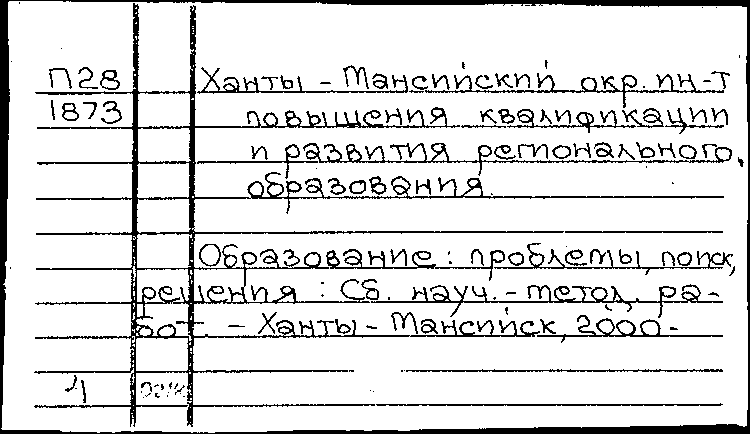 П28 Ханты-Мансийский окр. ин-т
1873 повышения квалификации
и развития регионального
образования.
Образование: проблемы, поиск,
решения: Сб. науч.-метод. ра-
бот. - Ханты-Мансийск, 2000-